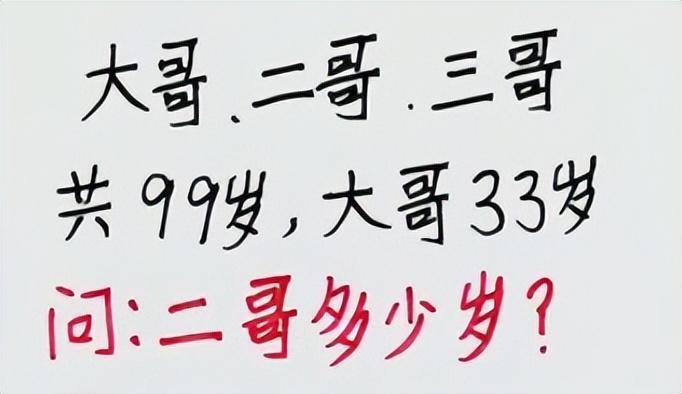 大哥、二哥、三哥
共99岁,大哥33岁
问:二哥多少岁?